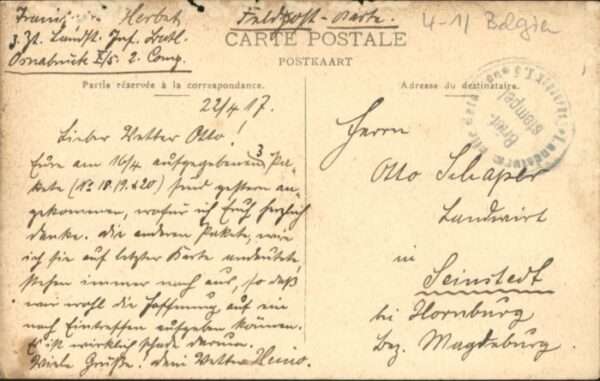 Herbst
Feldpost-Karte.
4-1/ Belgien
z. Zt. Landst. Inf. Batl.
Osnabrück X/5. 2. Comp.
CARTE POSTALE
POSTKAART
Partie réservée à la correspondance.
Adresse du destinataire.
Brief-
stempel
22/4 17.
Lieber Vetter Otto!
Eure am 16/4 aufgegebenen 3 Pa-
kete (No 18. 19. & 20) sind gestern an-
gekommen, wofür ich Euch herzlich
danke. Die anderen Pakete, wie
ich sie auf letzter Karte andeutete,
stehen immer noch aus, so daß
wir wohl die Hoffnung auf ein
noch Eintreffen aufgeben können.
Es ist wirklich schade darum.
Viele Grüße! Dein Vetter Heino.
Herrn
Otto Schaper
Landwirt
in
Seinstedt
bei Hornburg
Bez. Magdeburg.